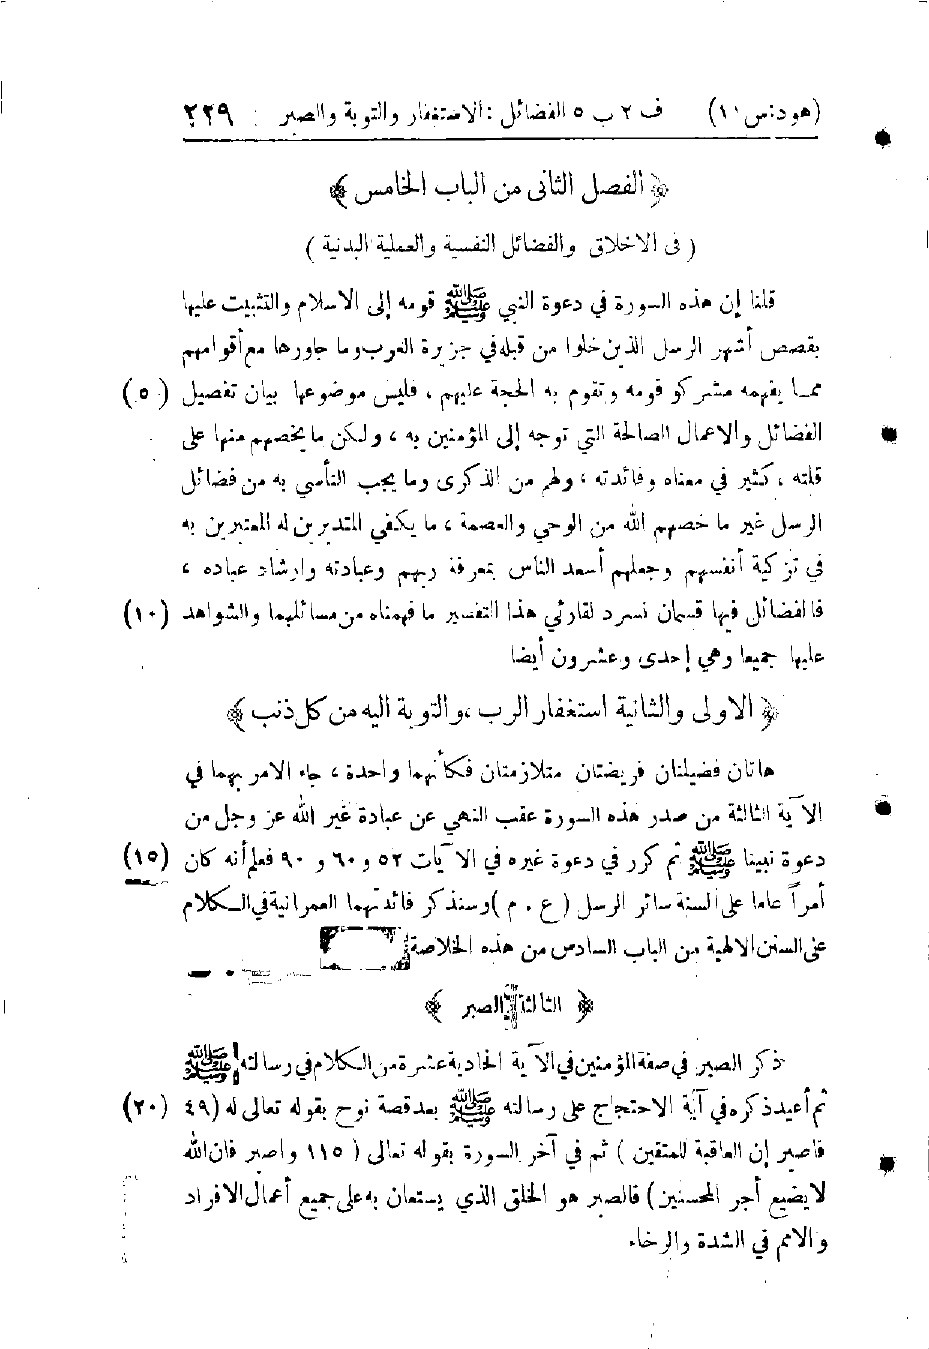 (هود: س ١١) ف ٢ ب ٥ الفضائل : الاستغفار والتوبة والصبر ٢٢٩
﴿ الفصل الثانى من الباب الخامس ﴾
( فى الاخلاق والفضائل النفسية والعملية البدنية )
قلنا إن هذه السورة في دعوة النبي ﷺ قومه إلى الاسلام والتثبيت عليها
بقصص أشهر الرسل الذين خلوا من قبله في جزيرة العرب وما جاورها مع أقوامهم
مما يفهمه مشركو قومه وتقوم به الحجة عليهم ، فليس موضوعها بيان تفصيل (٥)
الفضائل والاعمال الصالحة التي توجه إلى المؤمنين به ، ولكن ما يخصهم منها على
قلته ، كثير في معناه وفائدته ، ولهم من الذكرى وما يجب التأسي به من فضائل
الرسل غير ما خصهم الله من الوحي والعصمة ، ما يكفي المتدبرين له المعتبرين به
في تزكية أنفسهم وجعلهم أسعد الناس بمعرفة ربهم وعبادته وارشاد عباده ،
فالفضائل فيها قسمان نسرد لقارئي هذا التفسير ما فهمناه من مسائلهما والشواهد (١٠)
عليها جميعا وهي إحدى وعشرون أيضا
﴿ الاولى والثانية استغفار الرب ، والتوبة اليه من كل ذنب ﴾
هاتان فضيلتان فريضتان متلازمتان فكأنهما واحدة ، جاء الامر بهما في
الآية الثالثة من صدر هذه السورة عقب النهي عن عبادة غير الله عز وجل من
دعوة نبينا ﷺ ثم كرر في دعوة غيره في الآيات ٥٢ و ٦٠ و ٩٠ فعلم أنه كان (١٥)
أمراً عاما على السنة سائر الرسل (ع . م) وسنذكر فائدتهما العمرانية في الكلام
على السنن الالهية من الباب السادس من هذه الخلاصة
﴿ الثالثة الصبر ﴾
ذكر الصبر في صفة المؤمنين في الآية الحادية عشرة من الكلام في رسالته ﷺ
ثم أعيد ذكره في آية الاحتجاج على رسالته ﷺ بعد قصة نوح بقوله تعالى له (٤٩ (٢٠)
فاصبر إن العاقبة للمتقين ) ثم في آخر السورة بقوله تعالى ( ١١٥ واصبر فان الله
لا يضيع أجر المحسنين ) فالصبر هو الخلق الذي يستعان به على جميع أعمال الافراد
والامم في الشدة والرخاء